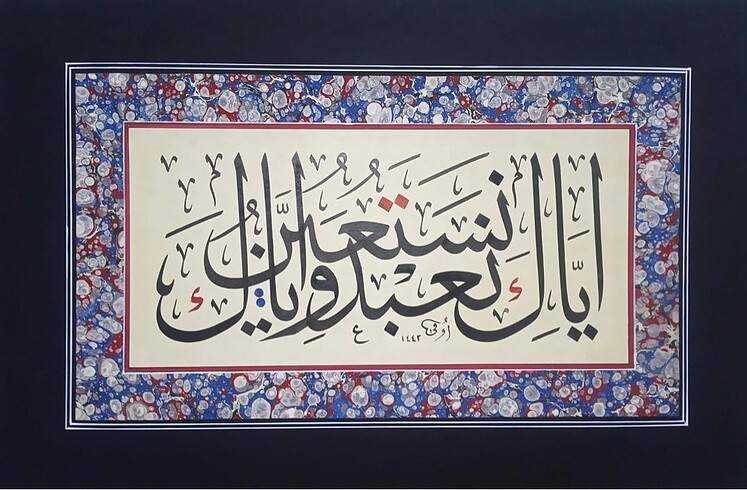 اِيَّاكَ نَعْبُدُ وَاِيَّاكَ نَسْتَعِينُ
١٤٤٢